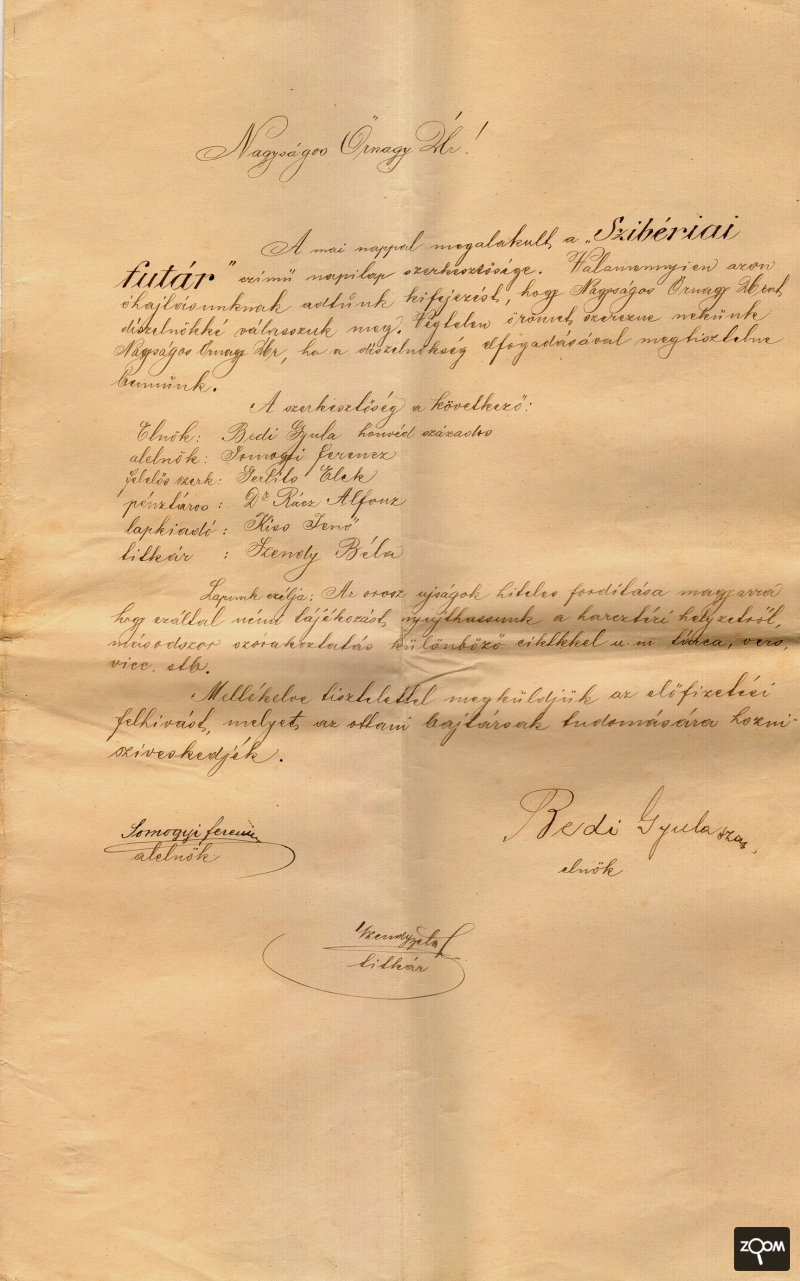 Nagyságos Őrnagy Úr!
A mai nappal megalakult a „Szibériai
futár" czimű napilap szerkesztősége. Valamennyien azon
óhajtásunknak adtunk kifejezést, hogy Nagyságos Őrnagy Urat
díszelnökké válasszuk meg. Végtelen örömet szerezne nekünk
Nagyságos Őrnagy Úr, ha a díszelnökség elfogadásával megtisztelne
bennünk.
A szerkesztőség a következő:
Elnök: Bedi Gyula honvéd százados
alelnök: Somogyi Ferencz
felelős szerk: Gerlits Elek
pénztáros: Dr Rácz Alfonz
lapkiadó: Kiss Jenő
titkár : Szendy Béla
Lapunk czélja: Az orosz ujságok hiteles fordítása magyarra
hogy ezáltal némi tájékozást nyujthassunk a harcztéri helyzetről,
másodszor szórakoztatás különböző cikkkel u. m. tárca, vers,
vicc. stb.
Mellékelve tisztelettel megküldjük az előfizetési
felhivást, melyet az ottani bajtársak tudomására hozni
sziveskedjék.
Somogyi Ferencz
alelnök
Bedi Gyula szás.
elnök
Szendy Béla
titkár
ZOOM